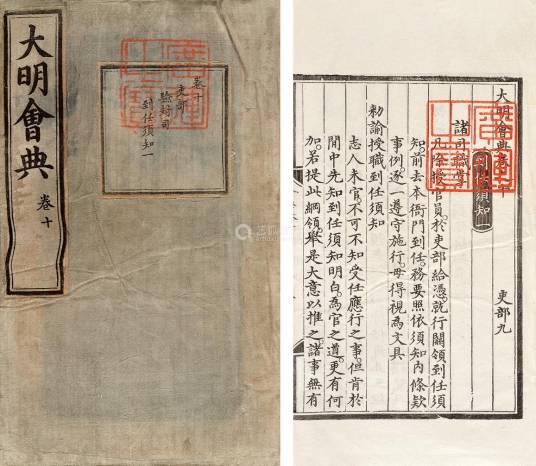 大明會典
卷十
卷十
吏部
驗封司
到任須知一
大明會典卷十
吏部九
諸司職掌
凡除授官員於吏部給憑就行關領到任須
知前去本衙門到任務要照依須知內條欵
事例逐一遵守施行毋得視為文具
勑諭授職到任須知
志人未官不可不知受任應行之事但肯於
閒中先知到任須知明白為官之道更有何
加若提此綱領舉是大意以推之諸事無有